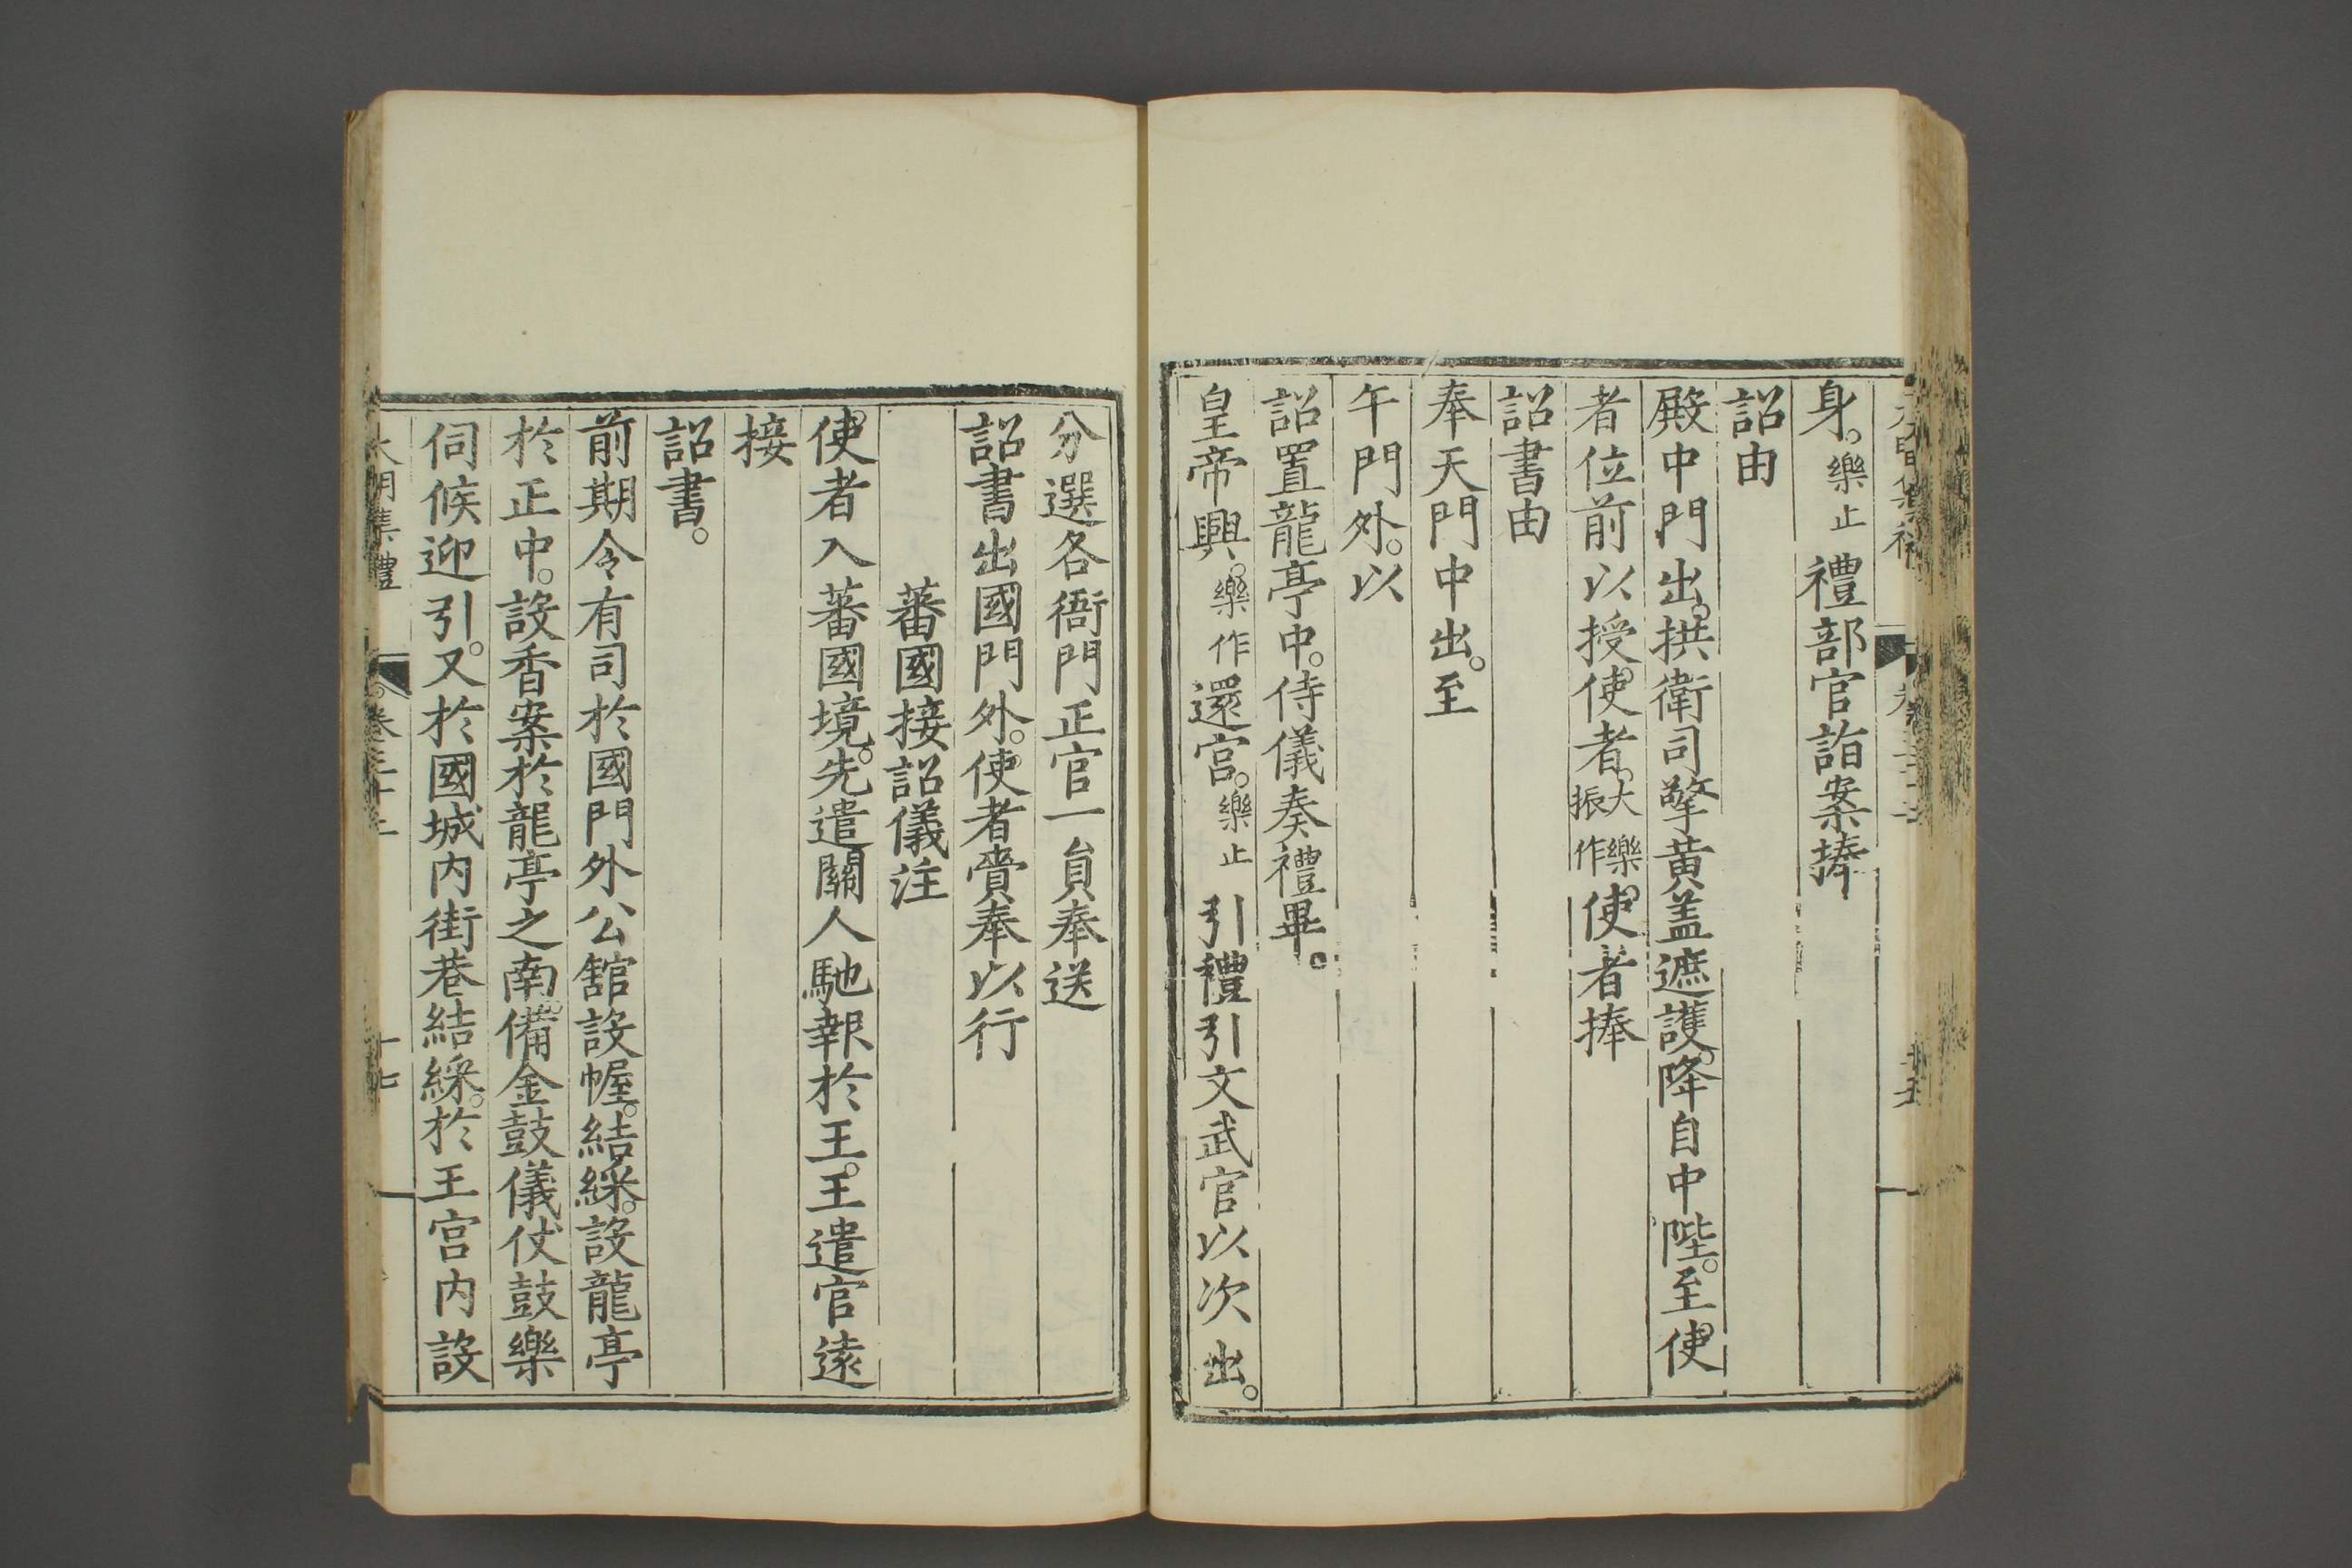 身。樂止禮部官詣案捧
詔由
殿中門出。拱衛司擎黃盖遮護。降自中陛。至使
者位前以授使者。大樂振作。使者捧
詔書由
奉天門中出。至
午門外。以
詔置龍亭中。侍儀奏禮畢。
皇帝興。樂作還宮。樂止引禮引文武官以次出。
分選各衙門正官一員奉送
詔書出國門外。使者賫奉以行
蕃國接詔儀注
使者入蕃國境。先遣關人馳報於王。王遣官遠
接
詔書。
前期令有司於國門外公舘設幄。結綵。設龍亭
於正中。設香案於龍亭之南。備金鼓儀仗鼓樂
伺候迎引。又於國城内街巷結綵。於王宮内設
大明集禮 卷三十二 十七